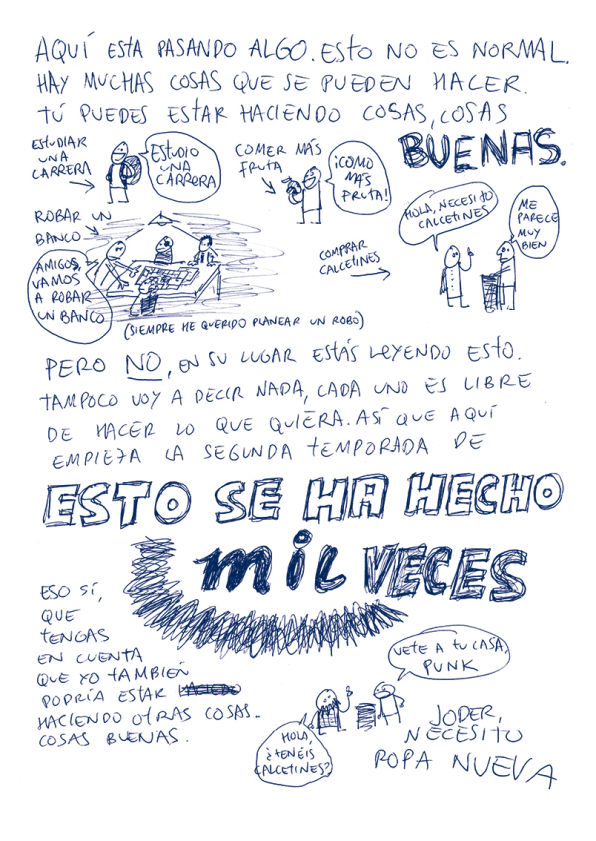 AQUÍ ESTA PASANDO ALGO. ESTO NO ES NORMAL.
HAY MUCHAS COSAS QUE SE PUEDEN HACER.
TÚ PUEDES ESTAR HACIENDO COSAS, COSAS
BUENAS.
ESTUDIAR
UNA
CARRERA
ESTUDIO
UNA
CARRERA
COMER MÁS
FRUTA
¡COMO
MÁS
FRUTA!
ROBAR UN
BANCO
AMIGOS,
VAMOS
A ROBAR
UN BANCO
(SIEMPRE HE QUERIDO PLANEAR UN ROBO)
COMPRAR
CALCETINES
HOLA, NECESITO
CALCETINES
ME
PARECE
MUY
BIEN
PERO NO, EN SU LUGAR ESTÁS LEYENDO ESTO.
TAMPOCO VOY A DECIR NADA, CADA UNO ES LIBRE
DE HACER LO QUE QUIERA. ASÍ QUE AQUÍ
EMPIEZA LA SEGUNDA TEMPORADA DE
ESTO SE HA HECHO
mil VECES
ESO SÍ,
QUE
TENGAS
EN CUENTA
QUE YO TAMBIÉN
PODRÍA ESTAR
HACIENDO OTRAS COSAS.
COSAS BUENAS.
VETE A TU CASA,
PUNK
HOLA,
¿TENÉIS
CALCETINES?
JODER,
NECESITO
ROPA NUEVA